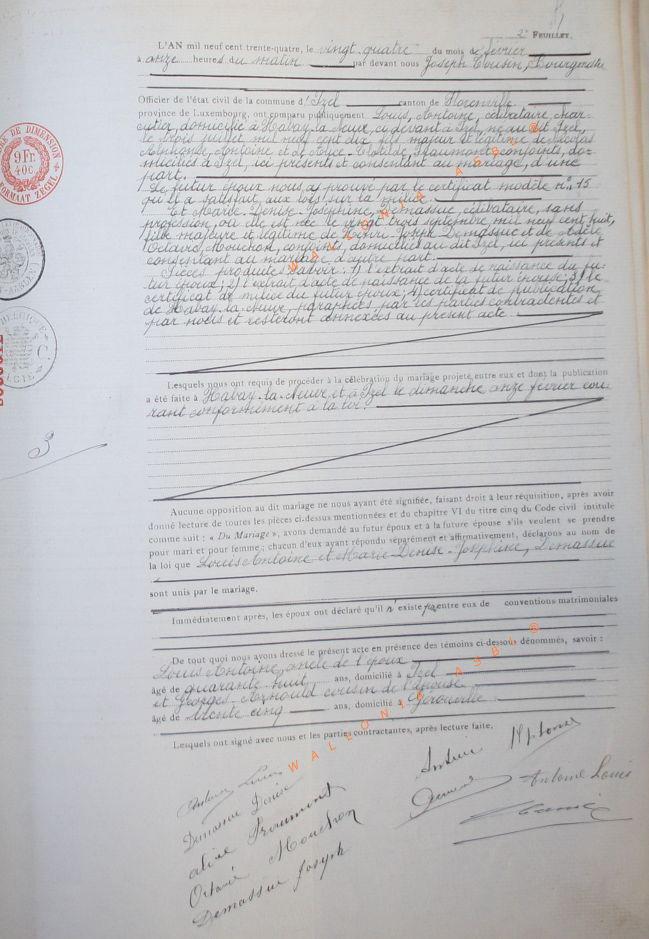 2e FEUILLET.
L'AN mil neuf cent trente-quatre, le vingt quatre du mois de février
à onze heures du matin par devant nous Joseph Cousin, Bourgmestre
Officier de l'état civil de la commune d'Izel canton de Florenville
province de Luxembourg, ont comparu publiquement Louis, Antoine, célibataire,
domicilié à Habay-la-Neuve, ci devant à Izel, né au dit Izel,
le trois juillet mil neuf cent dix fils majeur et légitime de Nicolas
Alphonse, Antoine et de Clotilde, conjoints, do-
miciliés à Izel, ici présents et consentant au mariage, d'une
part.
Le futur époux nous a prouvé par le certificat modèle n° 15
qu'il a satisfait aux lois sur la milice
Et Marie-Denise-Joséphine, Demassue, célibataire, sans
profession, où elle est née le vingt trois septembre mil neuf cent huit,
fille majeure et légitime de Henri Joseph Demassue et de Adèle
Octavie, Mouchon, conjoints, domiciliés au dit Izel, ici présents et
consentant au mariage d'autre part.
Pièces produites savoir: 1) l'extrait d'acte de naissance du fu-
tur époux; 2) l'extrait d'acte de naissance de la future épouse; 3) le
certificat de milice du futur époux; 4) certificat de publication
de Habay-la-Neuve, paraphés par les parties contractantes et
par nous et resteront annexées au présent acte.
Lesquels nous ont requis de procéder à la célébration du mariage projeté entre eux et dont la publication
a été faite à Habay-la-Neuve et à Izel le dimanche onze février cou-
rant conformément à la loi.
Aucune opposition au dit mariage ne nous ayant été signifiée, faisant droit à leur réquisition, après avoir
donné lecture de toutes les pièces ci-dessus mentionnées et du chapitre VI du titre cinq du Code civil intitulé
comme suit : « Du Mariage », avons demandé au futur époux et à la future épouse s'ils veulent se prendre
pour mari et pour femme ; chacun d'eux ayant répondu séparément et affirmativement, déclarons au nom de
la loi que Louis Antoine et Marie-Denise-Joséphine, Demassue
sont unis par le mariage.
Immédiatement après, les époux ont déclaré qu'il n'existe pas entre eux de conventions matrimoniales
De tout quoi nous avons dressé le présent acte en présence des témoins ci-dessous dénommés, savoir :
Louis Antoine, oncle de l'époux
âgé de quarante huit ans, domicilié à Izel
et Georges Arnould cousin de l'épouse
âgé de trente cinq ans, domicilié à Gérouville
Lesquels ont signé avec nous et les parties contractantes, après lecture faite.
Antoine Louis
Demassue Denise
Octavie Mouchon
Demassue Joseph
Antoine Alphonse
Antoine Louis
3
9Fr.
40c.
FORMAAT ZEGEL
WALLONIA ASBL ®
WALLONIA ASBL ®